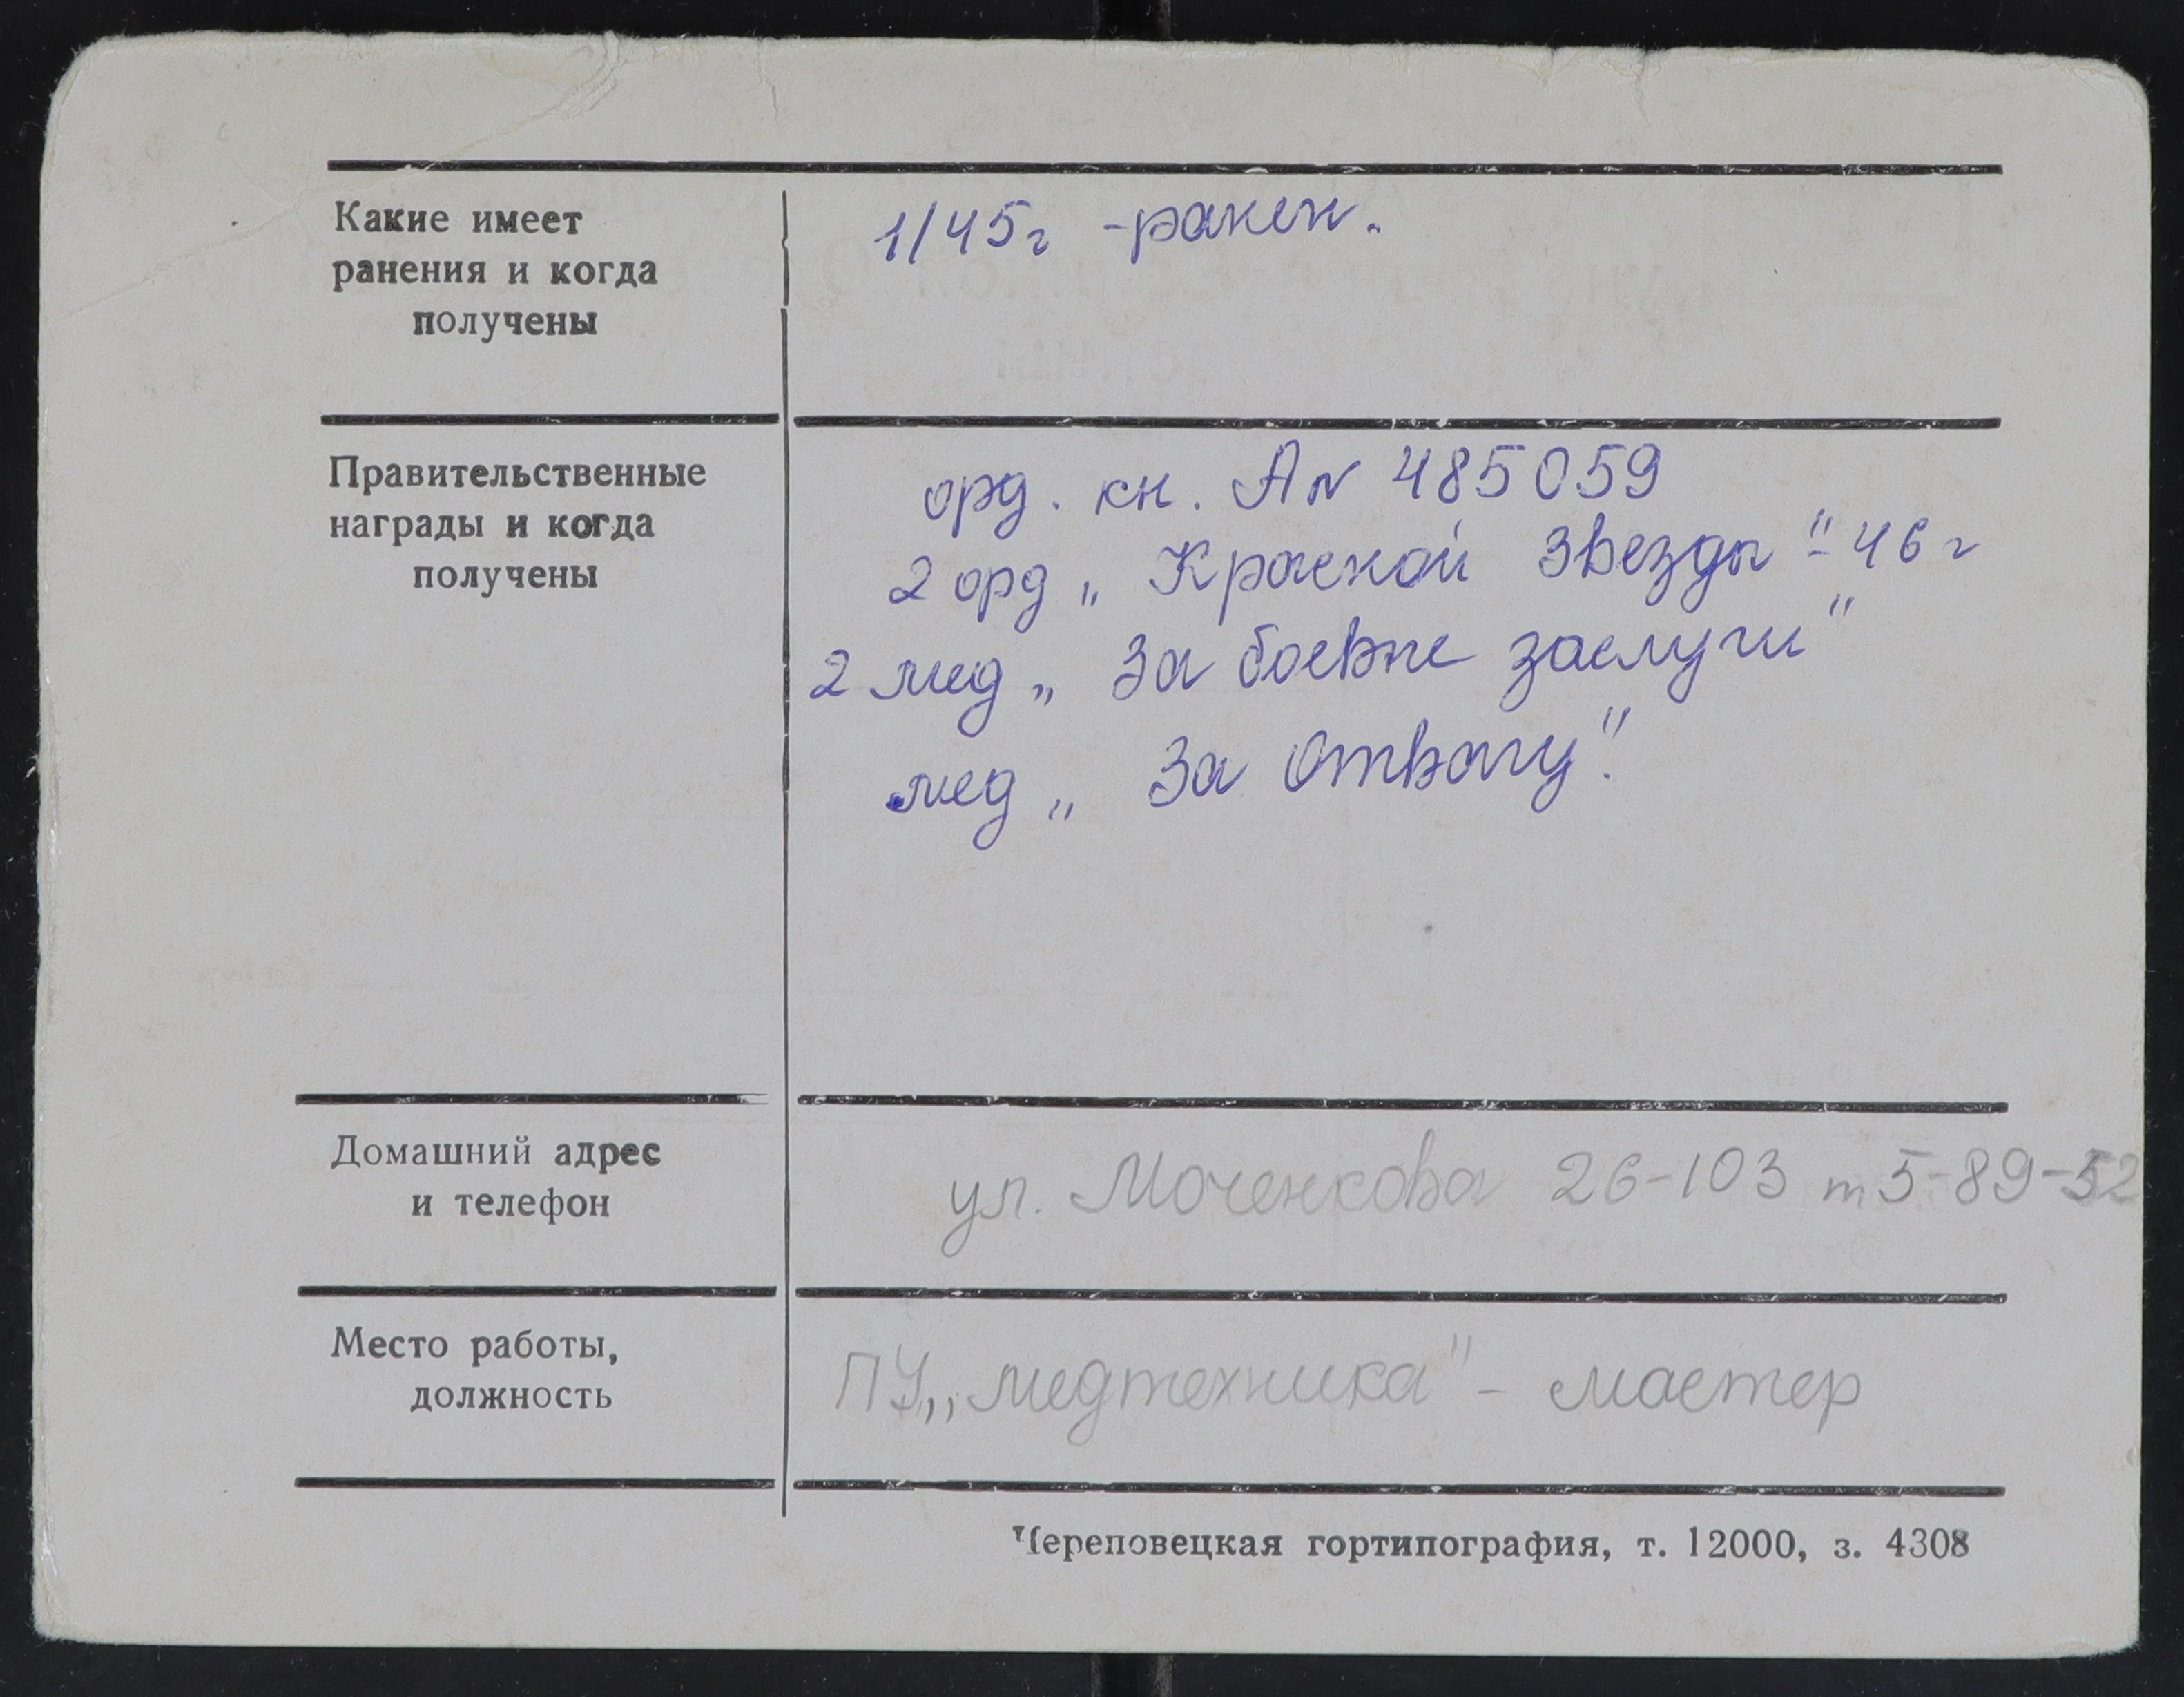 Какие имеет
ранения и когда
получены
1/45г - ранен.
Правительственные
награды и когда
получены
орд. кн. А № 485059
2 орд „Красной Звезды" - 46 г
2 мед „За боевые заслуги"
мед „За Отвагу".
Домашний адрес
и телефон
ул. Моченкова 26-103 т 5-89-52
Место работы,
должность
ПУ „медтехника" - мастер
Череповецкая гортипография, т. 12000, з. 4308